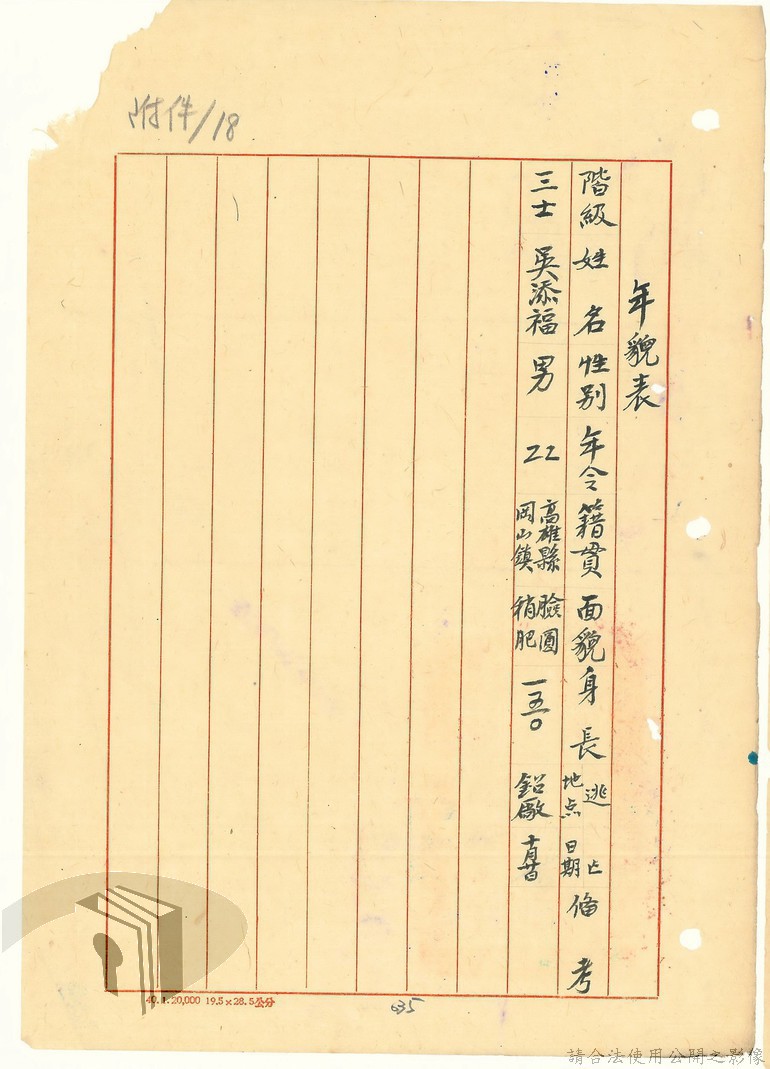 附件/18
年貌表
階級 姓名 性別 年令 籍貫 面貌 身長 逃亡 地点 日期 俻考
三士 吳添福 男 22 高雄縣岡山鎮 臉圓稍肥 一五〇 鋁廠
40.1.20,000 19.5×28.5公分
035
請合法使用公開之影像